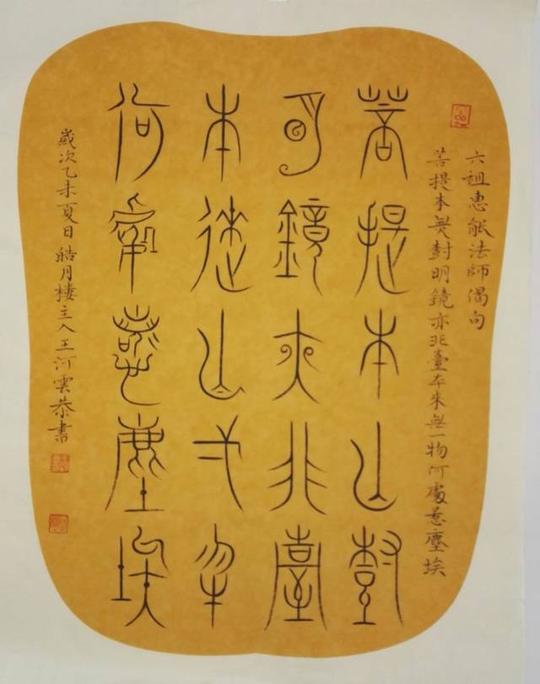 六祖惠能法師偈句
菩提本無尌明鏡亦非臺本來無一物何處惹塵埃
菩提本亡尌
明鏡亦非臺
本來亡弌物
何處惹塵埃
歲次乙未夏日皓月樓主人王河雲恭書